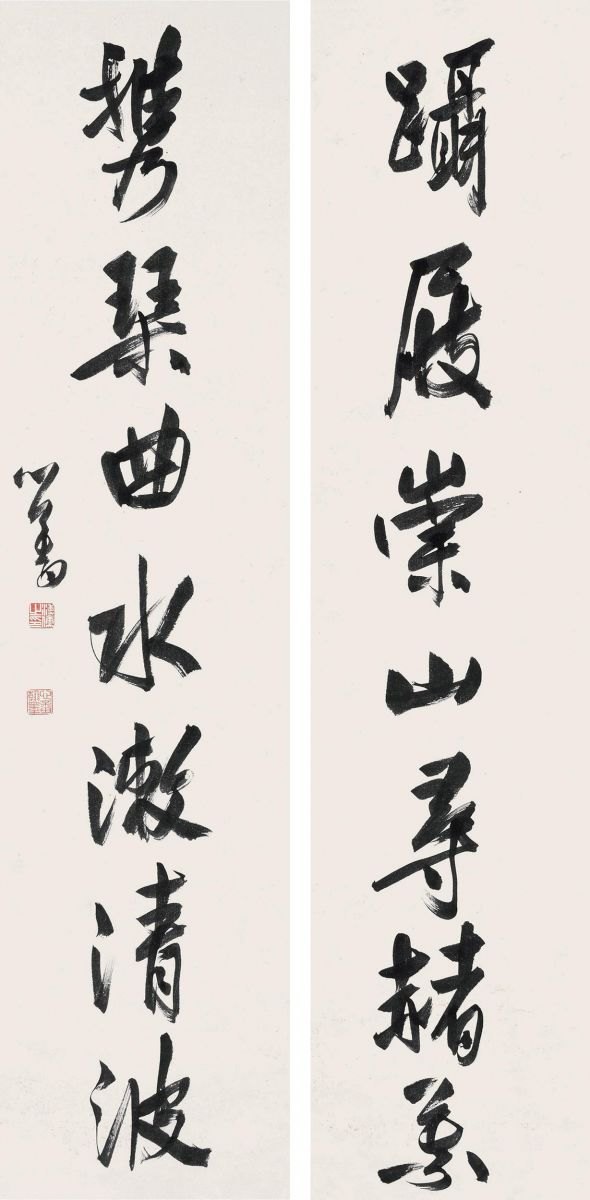 躡屐崇山尋赭葉
携琴曲水漱清波
心畬